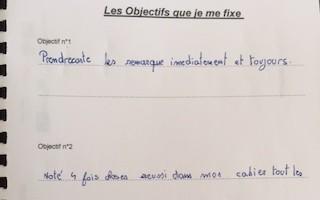 Les Objectifs que je me fixe
Objectif n°1
Prendreconte les remarque imediatement et toujours.
Objectif n°2
Noté 4 fois choses reussi dans mon cahier tout les